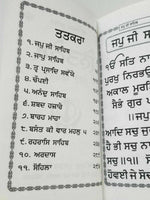 ਤਤਕਰਾ
੧. ਜਪੁ ਜੀ ਸਾਹਿਬ
੨. ਜਾਪੁ ਸਾਹਿਬ
੩. ਤ੍ਵ ਪ੍ਰਸਾਦਿ ਸਵੱਯੇ
੪. ਚੌਪਈ
੫. ਅਨੰਦੁ ਸਾਹਿਬ
੬. ਸ਼ਬਦ ਹਜ਼ਾਰੇ
੭. ਬਾਰਹ ਮਾਹਾ
੮. ਬਸੰਤ ਕੀ ਵਾਰ ਮਹਲੁ ੫
੯. ਰਹਰਾਸਿ ਸਾਹਿਬ
੧੦. ਅਰਦਾਸ
੧੧. ਸੋਹਿਲਾ
ਜਪੁ ਜੀ ਸਾਹਿ
ੴ ਸਤਿ ਨਾਮੁ
ਪੁਰਖੁ ਨਿਰਭਉ
ਅਕਾਲ ਮੂਰਤਿ
ਸੈਭੰ ਗੁਰ ਪ੍ਰਸਾ
॥ ਜਪੁ
ਆਦਿ ਸਚੁ ਜੁਗਾ
ਹੈ ਭੀ ਸਚੁ ਨਾਨਕ